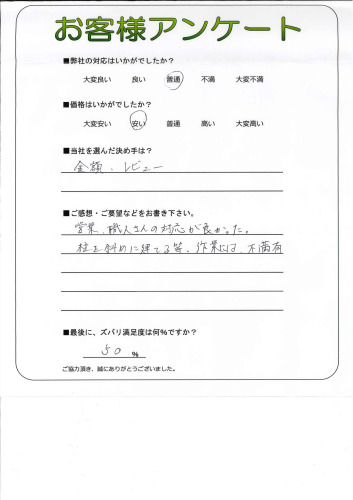 お客様アンケート
■弊社の対応はいかがでしたか?
大変良い 良い 普通 不満 大変不満
■価格はいかがでしたか?
大変安い 安い 普通 高い 大変高い
■当社を選んだ決め手は?
金額、レビュー
■ご感想・ご要望などをお書き下さい。
営業、職人さんの対応が良かった。
柱を斜めに建てる等、作業には、不満有
■最後に、ズバリ満足度は何%ですか?
50 %
ご協力頂き、誠にありがとうございました。